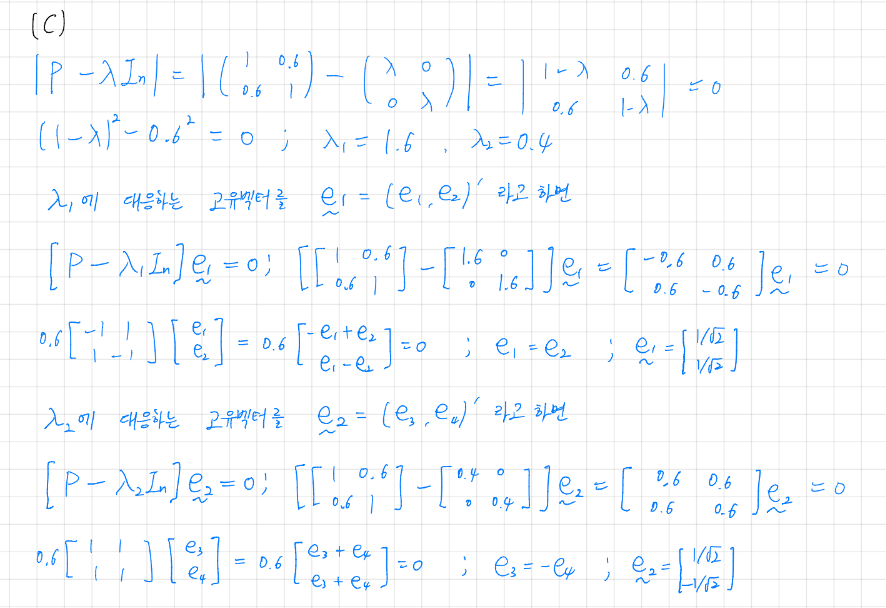 (C)
|P - λIn| = |(1 0.6 0.6 1) - (λ 0 0 λ)| = |1-λ 0.6 0.6 1-λ| = 0
(1-λ)² - 0.6² = 0 ; λ₁ = 1.6 , λ₂ = 0.4
λ₁에 대응하는 고유벡터를 e₁ = (e₁, e₂)′ 라고 하면
[P - λ₁In]e₁ = 0; [[1 0.6 0.6 1] - [1.6 0 0 1.6]]e₁ = [-0.6 0.6 0.6 -0.6]e₁ = 0
0.6[-1 1 1 -1][e₁ e₂] = 0.6[-e₁+e₂ e₁-e₂] = 0 ; e₁ = e₂ ; e₁ = [1/√2 1/√2]
λ₂에 대응하는 고유벡터를 e₂ = (e₃, e₄)′ 라고 하면
[P - λ₂In]e₂ = 0; [[1 0.6 0.6 1] - [0.4 0 0 0.4]]e₂ = [0.6 0.6 0.6 0.6]e₂ = 0
0.6[1 1 1 1][e₃ e₄] = 0.6[e₃+e₄ e₃+e₄] = 0 ; e₃ = -e₄ ; e₂ = [1/√2 -1/√2]